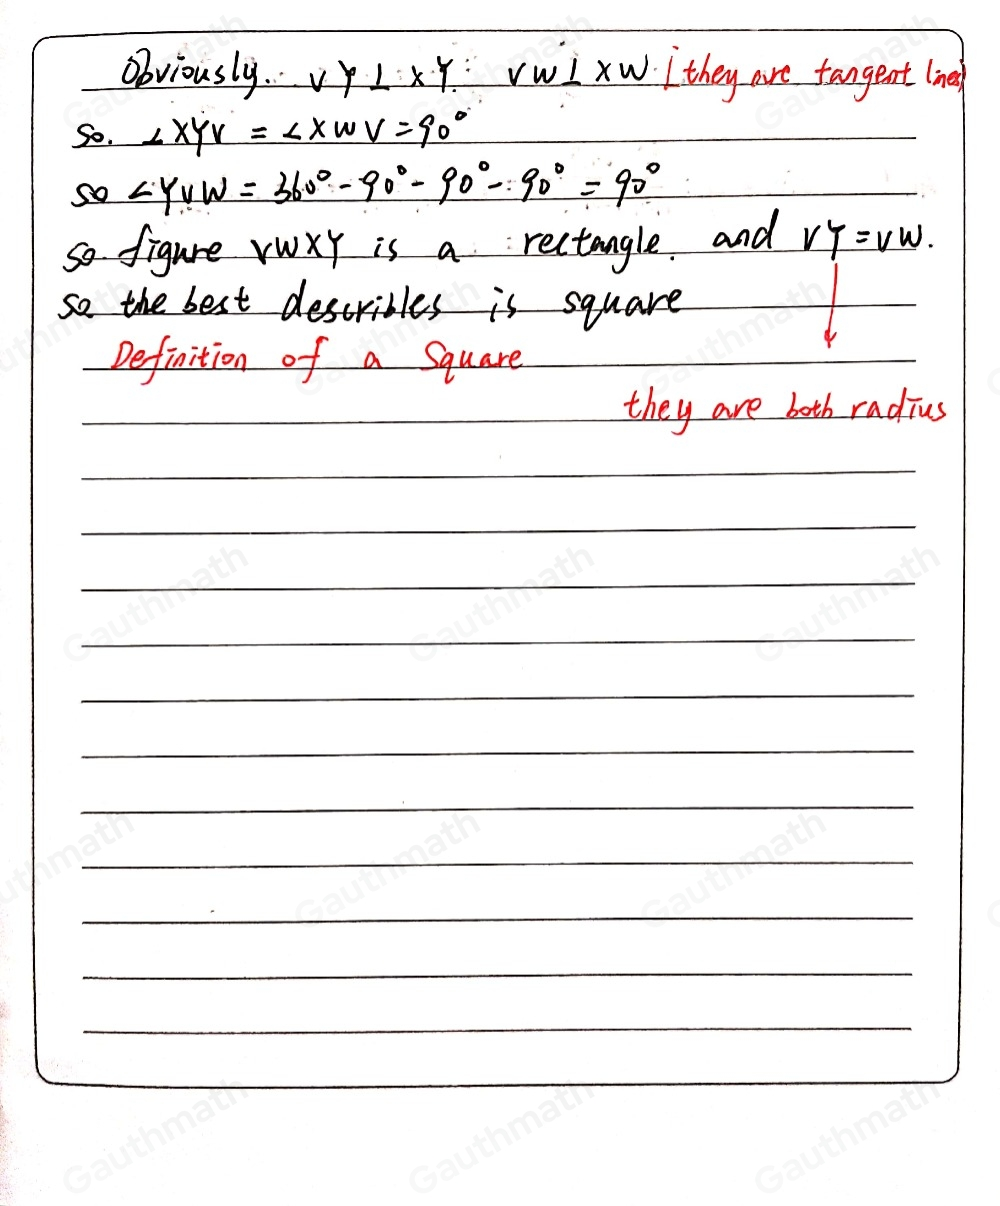 Obviously. VY⊥XY. VW⊥XW (they are tangent lines)
So. ∠XYV = ∠XWV = 90°
so ∠YVW = 360° - 90° - 90° - 90° = 90°
so figure VWXY is a rectangle. and VY = VW.
so the best describles is square
Definition of a Square
they are both radius